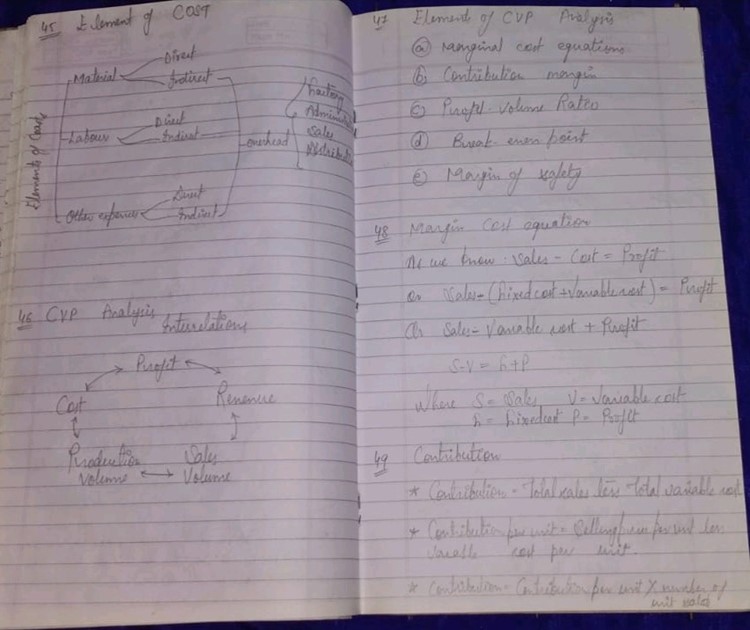 45 Element of COST
Elements of Costs
Material
Direct
Indirect
Labour
Direct
Indirect
Other expenses
Direct
Indirect
overhead
Factory
Sales
46 CVP Analysis
Interrelations
Profit
Cost
Revenue
Production
Volume
Sales
Volume
47 Elements of CVP Analysis
(a) Marginal cost equations
(b) Contribution margin
(c) Profit-volume Ratio
(d) Break-even point
(e) Margin of safety
48 Margin Cost equation
As we know: Sales - Cost = Profit
Or Sales - (fixed cost + Variable cost) = Profit
Or Sales - Variable cost + Profit
S-V = F+P
Where S = Sales V = Variable cost
F = fixed cost P = Profit
49 Contribution
* Contribution = Total sales less Total variable cost
* Contribution per unit = Selling price per unit less
variable cost per unit.
* Contribution = Contribution per unit X number of
unit sales